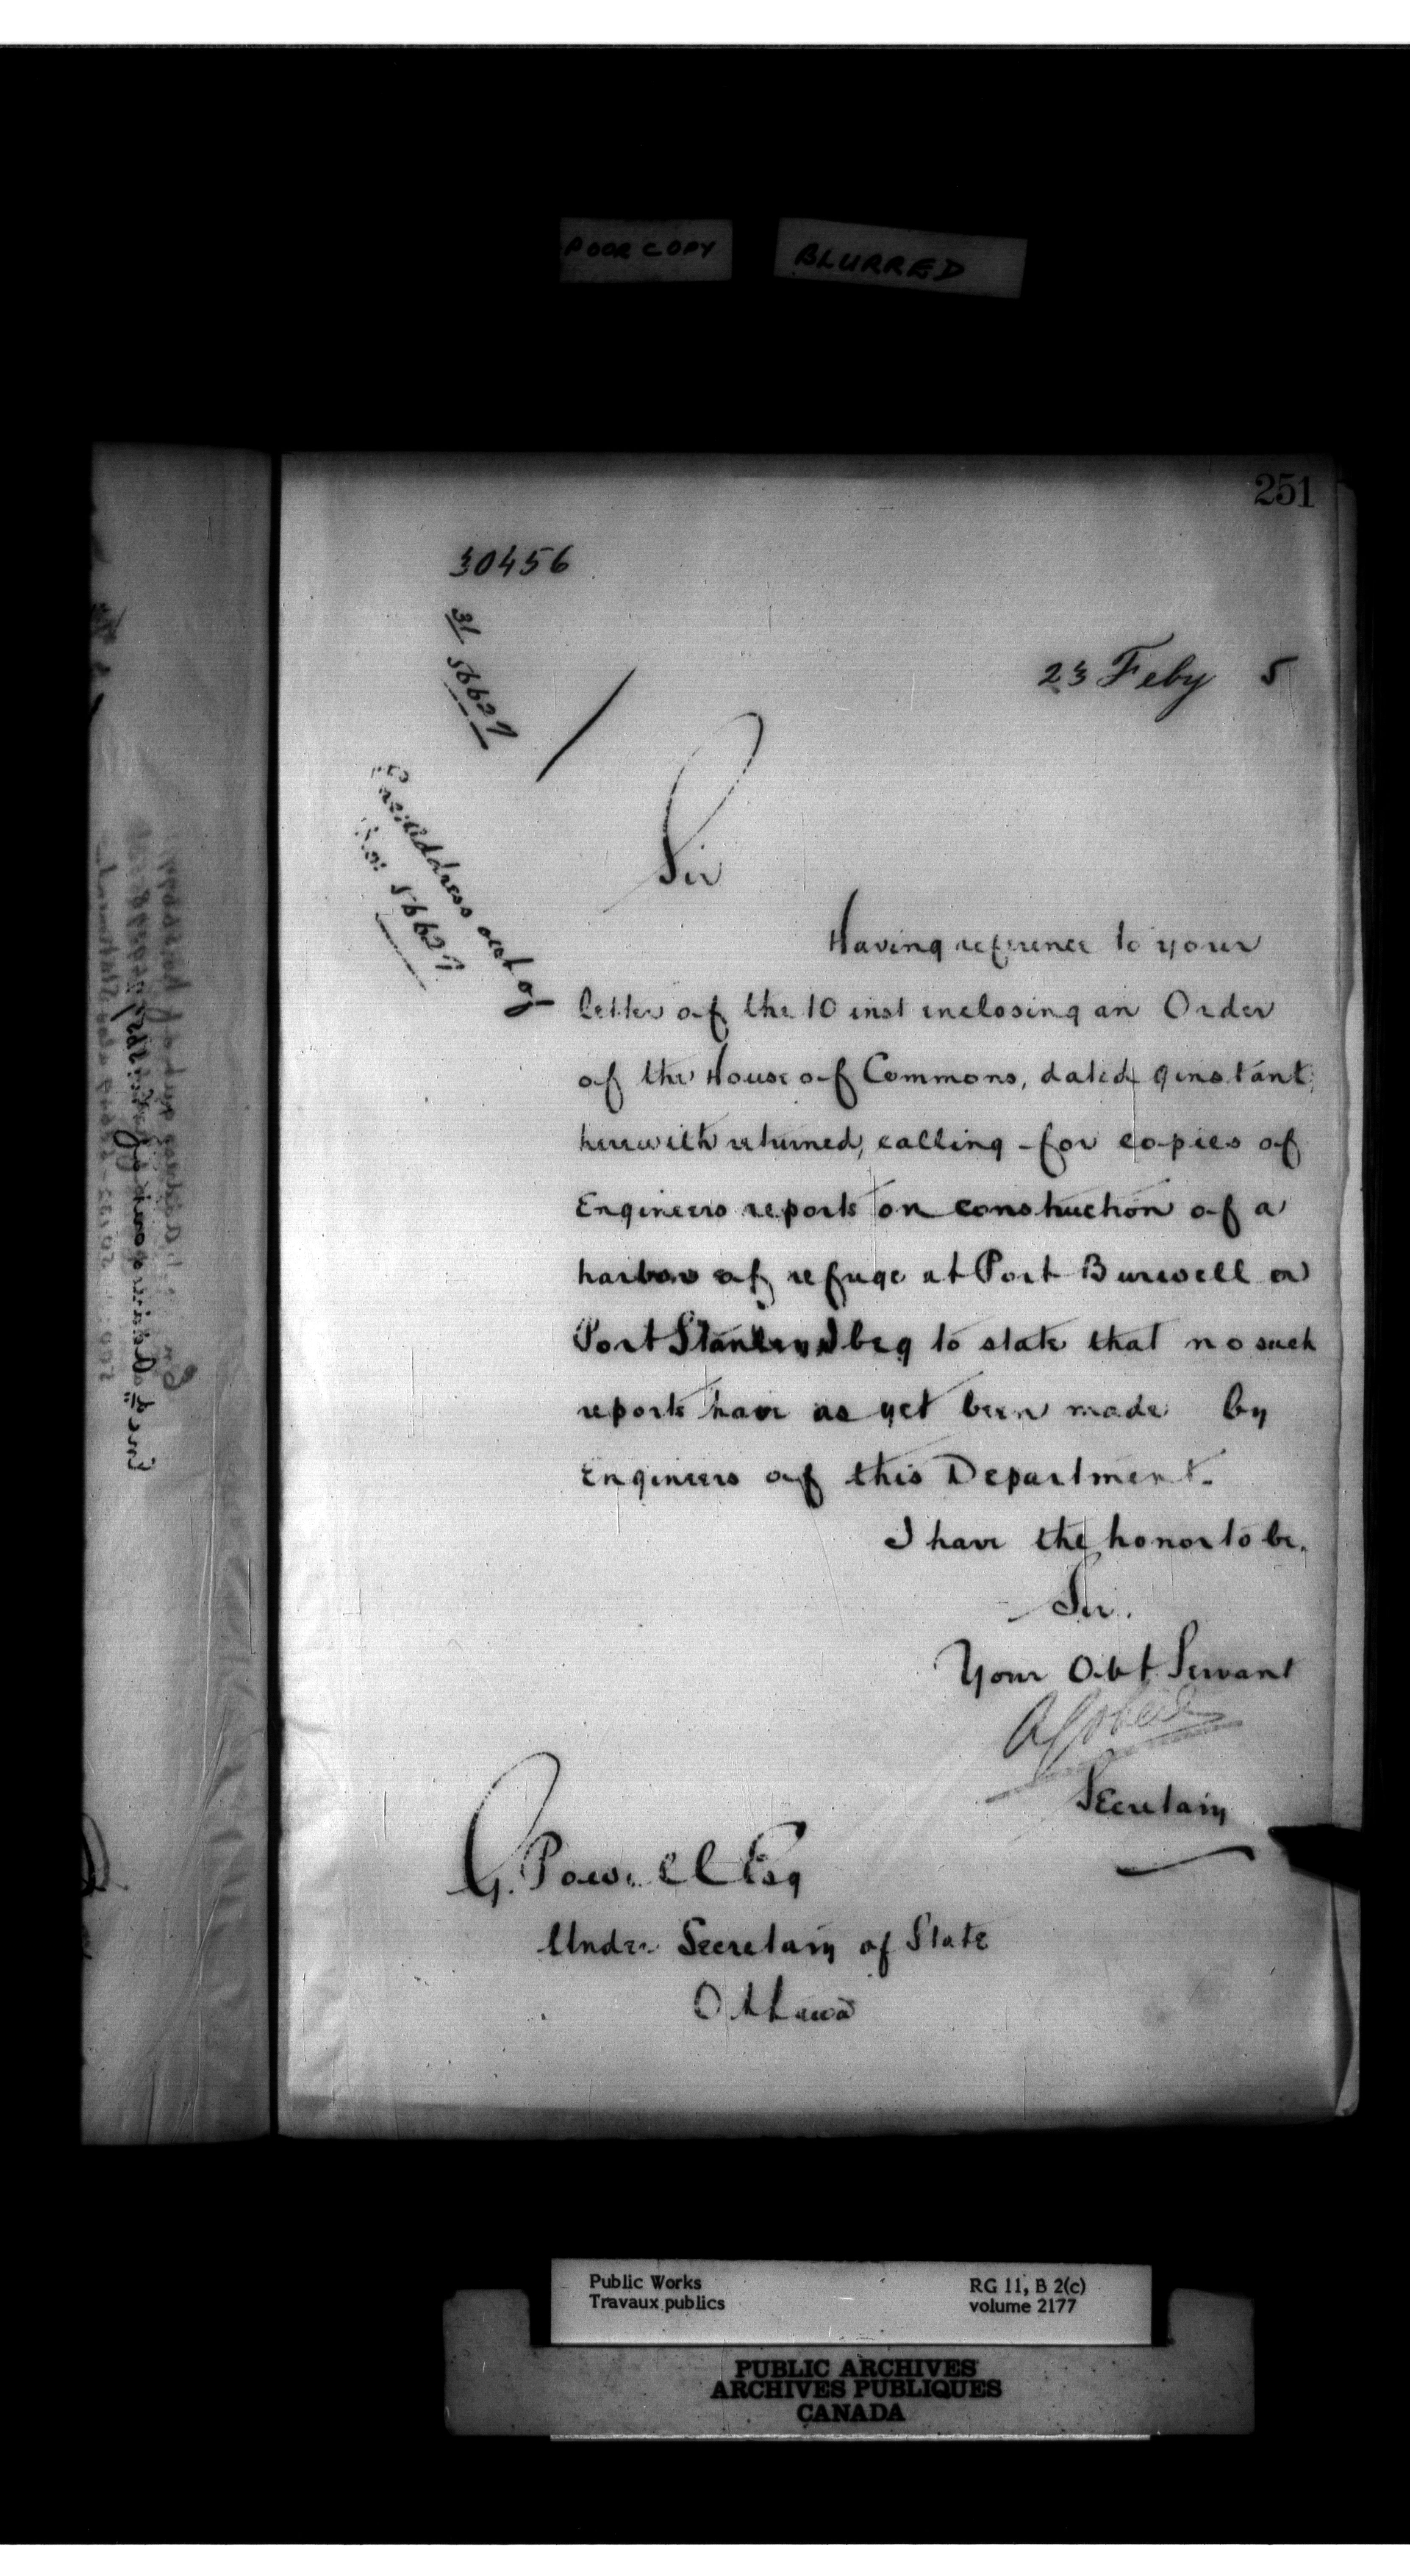 POOR COPY
BLURRED
251
30456
31
56627
23 Feby 5
Enc: Address out of
No: 56627
Sir
Having reference to your
letter of the 10 inst enclosing an Order
of the House of Commons, dated 9 instant,
herewith returned, calling for copies of
Engineers reports on construction of a
harbor of refuge at Port Burwell or
Port Stanley I beg to state that no such
reports have as yet been made by
Engineers of this Department.
I have the honor to be,
Sir.
Your Obt Servant
A Gobeil
Secretary
G. Powell Esq
Under Secretary of State
Ottawa
Public Works
Travaux publics
RG 11, B 2(c)
volume 2177
PUBLIC ARCHIVES
ARCHIVES PUBLIQUES
CANADA